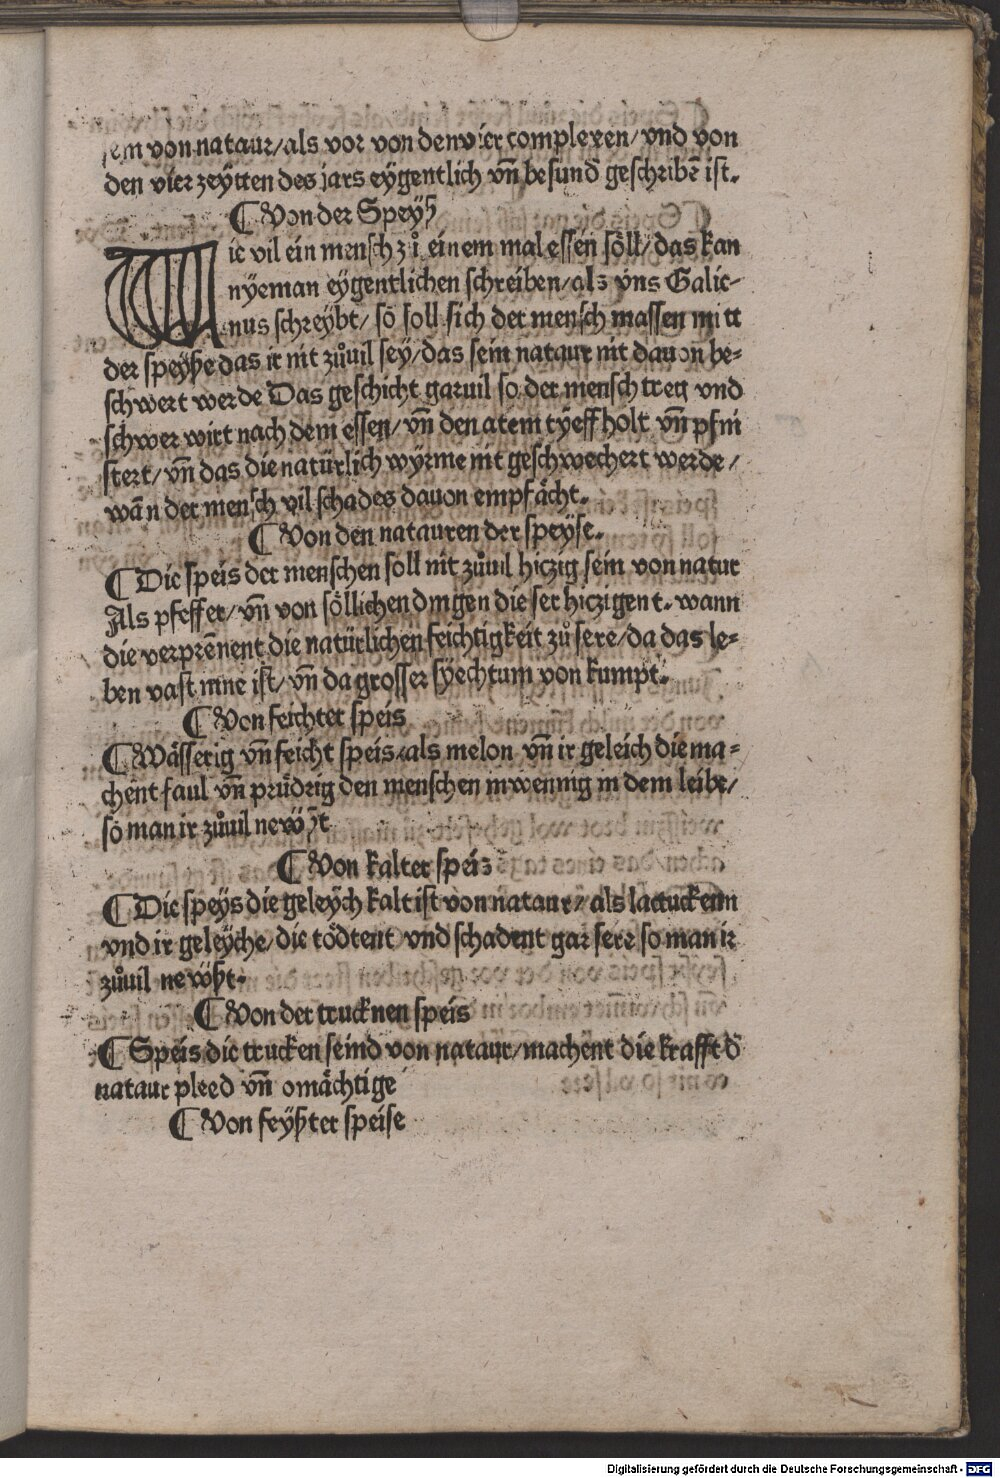 sem von nataur/als vor von den vier complexen/vnd von
den vier zeÿtten des jars eÿgentlich vñ besund̄ geschribē ist.
¶ Von der Speyß
Wie vil ein mensch zů einem mal essen söll/das kan
nÿeman eÿgentlichen schreiben/als vns Galie-
nus schreÿbt/so soll sich der mensch massen mitt
der speyße das ir nit zůuil sey/das sein nataur nit dauon be-
schwert werde Das geschicht garuil so der mensch treg vnd
schwer wirt nach dem essen/vñ den atem tÿeff holt vñ pfni
stert/vñ das die natürlich wÿrme nit geschwechert werde/
wañ der mensch vil schades dauon empfächt.
¶ Von den natauren der speyse.
¶ Die speis der menschen soll nit zůuil hiczig sein von natur
Als pfeffer/vñ von söllichen dingen die ser hiczigent. wann
die verprēnent die natürlichen feichtigkeit zů sere/da das le-
ben vast inne ist/vñ da grosser sÿechtum von kumpt.
¶ Von feichter speis
¶ Wässerig vñ feicht speis/als melon vñ ir geleich die ma-
chent faul vñ prüdrig den menschen inwennig in dem leibe/
so man ir zůuil newßt
¶ Von kalter speis
¶ Die speys die geleÿch kalt ist von nataur/als lactuckenn
vnd ir geleÿche/die tödtent vnd schadent gar sere so man ir
zůuil newßt.
¶ Von der trucknen speis
¶ Speis die trucken seind von nataur/machent die krafft d̄
nataur pleed vñ omächtige
¶ Von feyßter speise
Digitalisierung gefördert durch die Deutsche Forschungsgemeinschaft - DFG